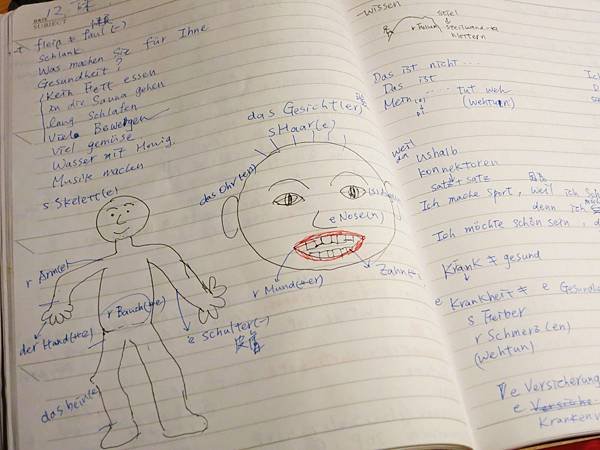 DATE
SUBJECT
fleißig ≠ faul (-)
schlank
Was machen Sie für Ihne
Gesundheit?
kein Fett essen
in die Sauna gehen
lang schlafen
Viele Bewegen
Viel gemüse.
Wasser mit Honig.
Musik machen
s Skelett(e)
das Gesicht(er)
s Haar(e)
das Ohr(en)
e Nase(n)
r Mund(er)
Zahn
r Arm(e)
r Bauch(e)
der Hand(e)
e Schulter(-)
das bein(e)
Wissen
r Felsen
steil
steilwand
klettern
Das ist nicht...
Das ist
Mein ..... tut weh
(wehtun)
Ich
weil
weshalb
konnektoren
satz + satz
Ich mache sport, weil ich
denn ich
Ich möchte schön sein, d
Krank ≠ gesund
e Krankheit ≠ e Gesund
s Fieber
r Schmerz(en)
(wehtun)
e Versicherung
e
Kranken